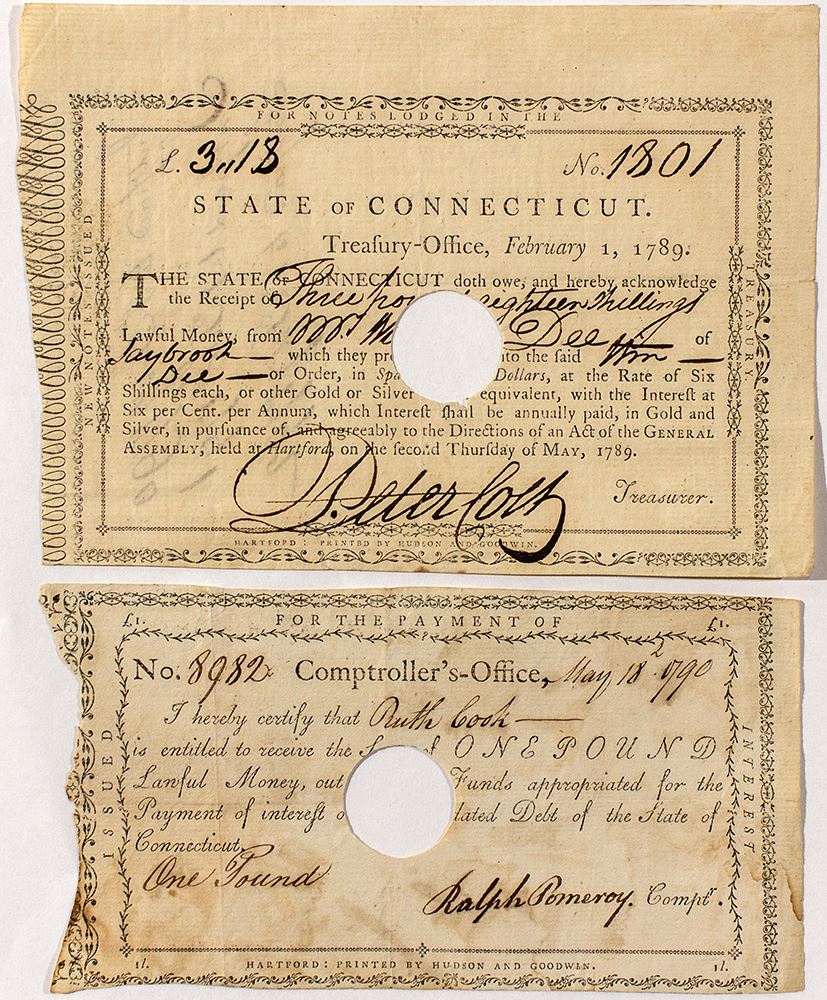 FOR NOTES LODGED IN THE
£. 3,,18 No. 1801
STATE OF CONNECTICUT.
Treaſury-Office, February 1, 1789.
THE STATE OF CONNECTICUT doth owe, and hereby acknowledge
the Receipt of Three eighteen Shillings
Lawful Money, from Dee of
Saybrook — which they to the ſaid Wm —
Dee — or Order, in Dollars, at the Rate of Six
Shillings each, or other Gold or Silver equivalent, with the Intereſt at
Six per Cent. per Annum, which Intereſt ſhall be annually paid, in Gold and
Silver, in purſuance of, and agreeably to the Directions of an Act of the GENERAL
ASSEMBLY, held at Hartford, on the ſecond Thurſday of MAY, 1789.
Peter Colt Treaſurer.
HARTFORD: PRINTED BY HUDSON AND GOODWIN.
NEW NOTES ISSUED
TREASURY.
£1. FOR THE PAYMENT OF £1.
No. 8982 Comptroller's-Office, May 18 1790
I hereby certify that Ruth Cook —
is entitled to receive the of ONE POUND
Lawful Money, out Funds appropriated for the
Payment of intereſt dated Debt of the State of
Connecticut.
One Pound
Ralph Pomeroy. Comptr.
1l. HARTFORD: PRINTED BY HUDSON AND GOODWIN. 1l.
ISSUED
INTEREST